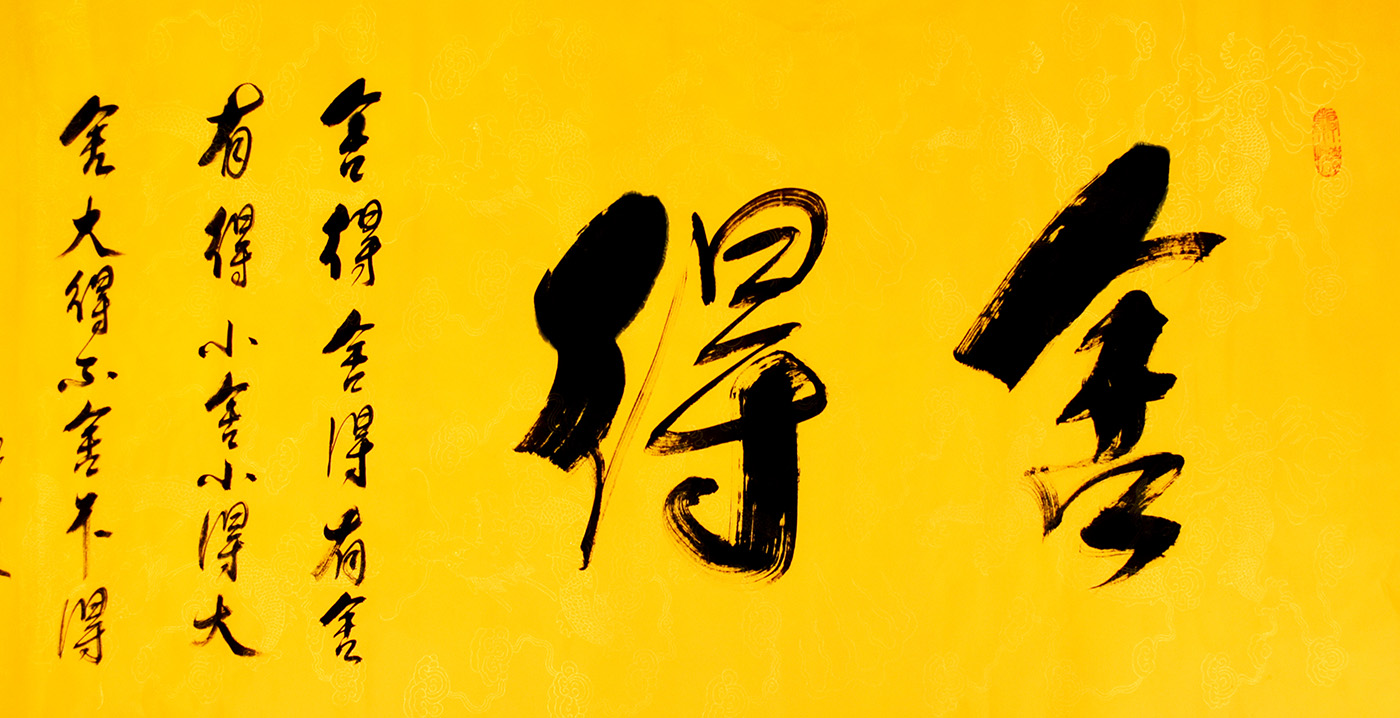 舍得
舍得舍得有舍
有得小舍小得大
舍大得不舍不得